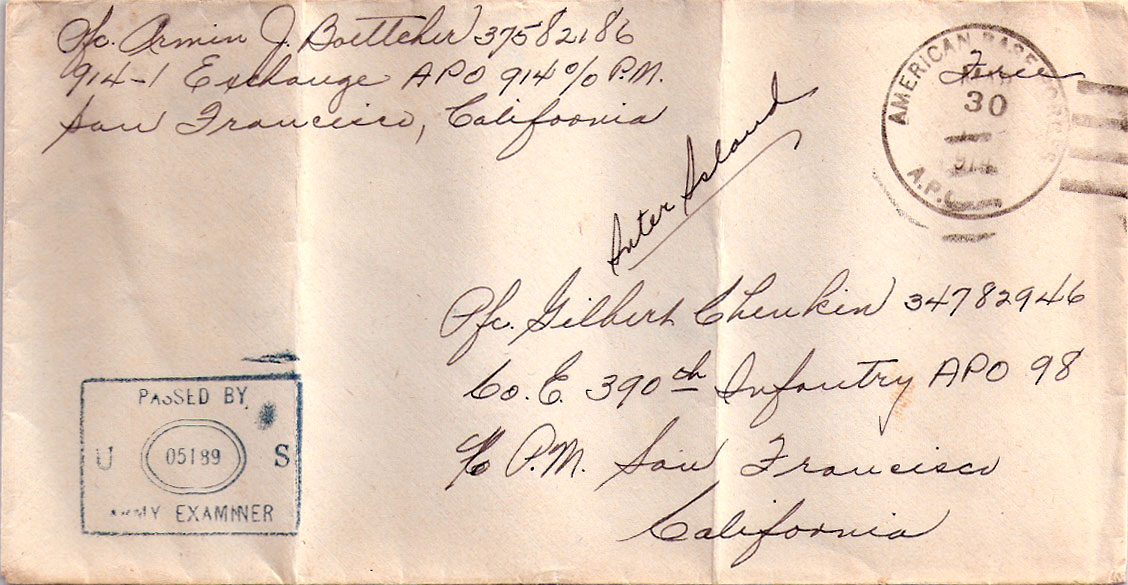 Pfc. Armin J. Boettcher 37582186
914-1 Exchange APO 914 c/o P.M.
San Francisco, California
Free
AMERICAN BASE FORCES
30
A.P.O.
Inter Island
Pfc. Gilbert Chenkin 34782946
Co. E. 390th Infantry APO 98
c/o P.M. San Francisco
California
PASSED BY
U 05189 S
ARMY EXAMINER